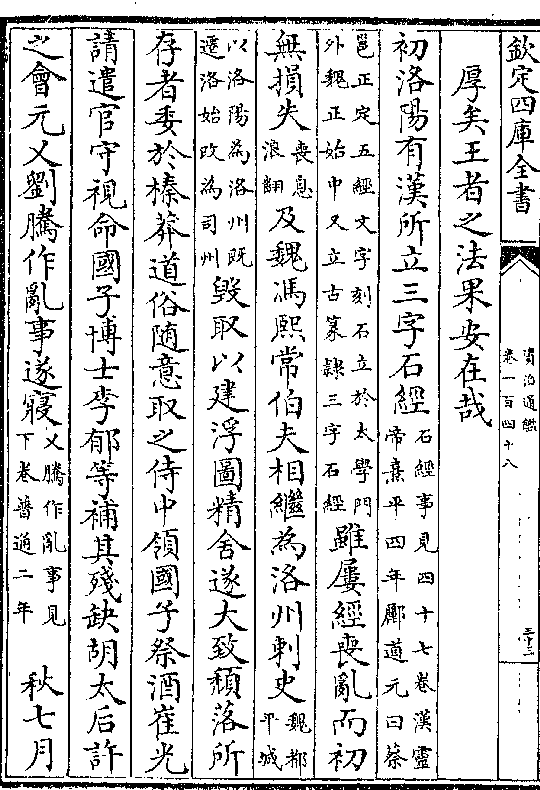 欽定四庫全書
資治通鑑
卷一百四十八
厚矣王者之法果安在哉
初洛陽有漢所立三字石經
石經事見四十七卷漢靈
帝熹平四年酈道元曰蔡
邕正定五經文字刻石立於太學門
外魏正始中又立古篆隸三字石經
雖屢經喪亂而初
無損失
喪息
浪翻
及魏馮熙常伯夫相繼為洛州刺史
魏都
平城
以洛陽為洛州既
遷洛始改為司州
毀取以建浮圖精舍遂大致頽落所
存者委於榛莽道俗随意取之侍中領國子祭酒崔光
請遣官守視命國子博士李郁等補其殘缺胡太后許
之會元乂劉騰作亂事遂寢
乂騰作亂事見
下卷普通二年
秋七月